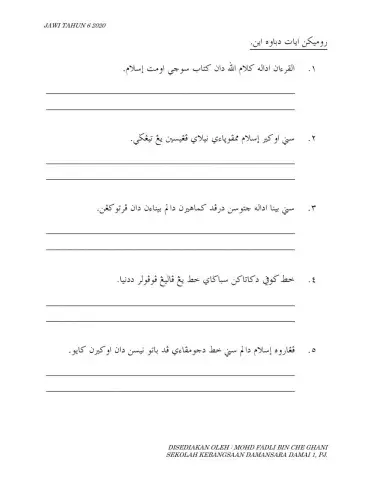 JAWI TAHUN 6 2020
روميكن ايات دباوه اين.
١. القرءان اداله كلام الله دان كتاب سوچي اومت إسلام.
٢. سني اوكير إسلام ممڤوڽاءي نيلاي ڤڠيسين يڠ تيڠݢي.
٣. سني بينا اداله جتوسن درڤد كماهيرن دالم بيناءن دان ڤرتوكڠن.
٤. خط كوفي دكاتاكن سباݢاي خط يڠ ڤاليڠ ڤوڤولر ددنيا.
٥. ڤڠاروه إسلام دالم سني خط دجومڤاءي ڤد باتو نيسن دان اوكيرن كايو.
DISEDIAKAN OLEH : MOHD FADLI BIN CHE GHANI
SEKOLAH KEBANGSAAN DAMANSARA DAMAI 1, PJ.